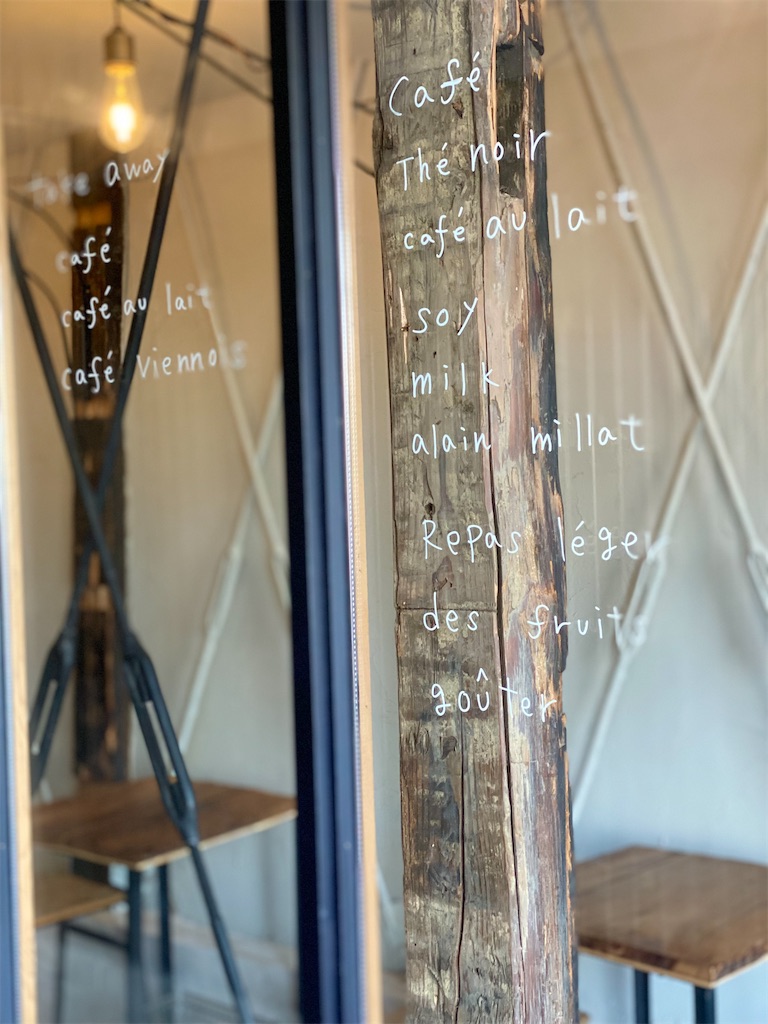 Take away
café
café au lait
café viennois
Café
Thé noir
café au lait
soy
milk
alain millat
Repas léger
des fruits
goûter